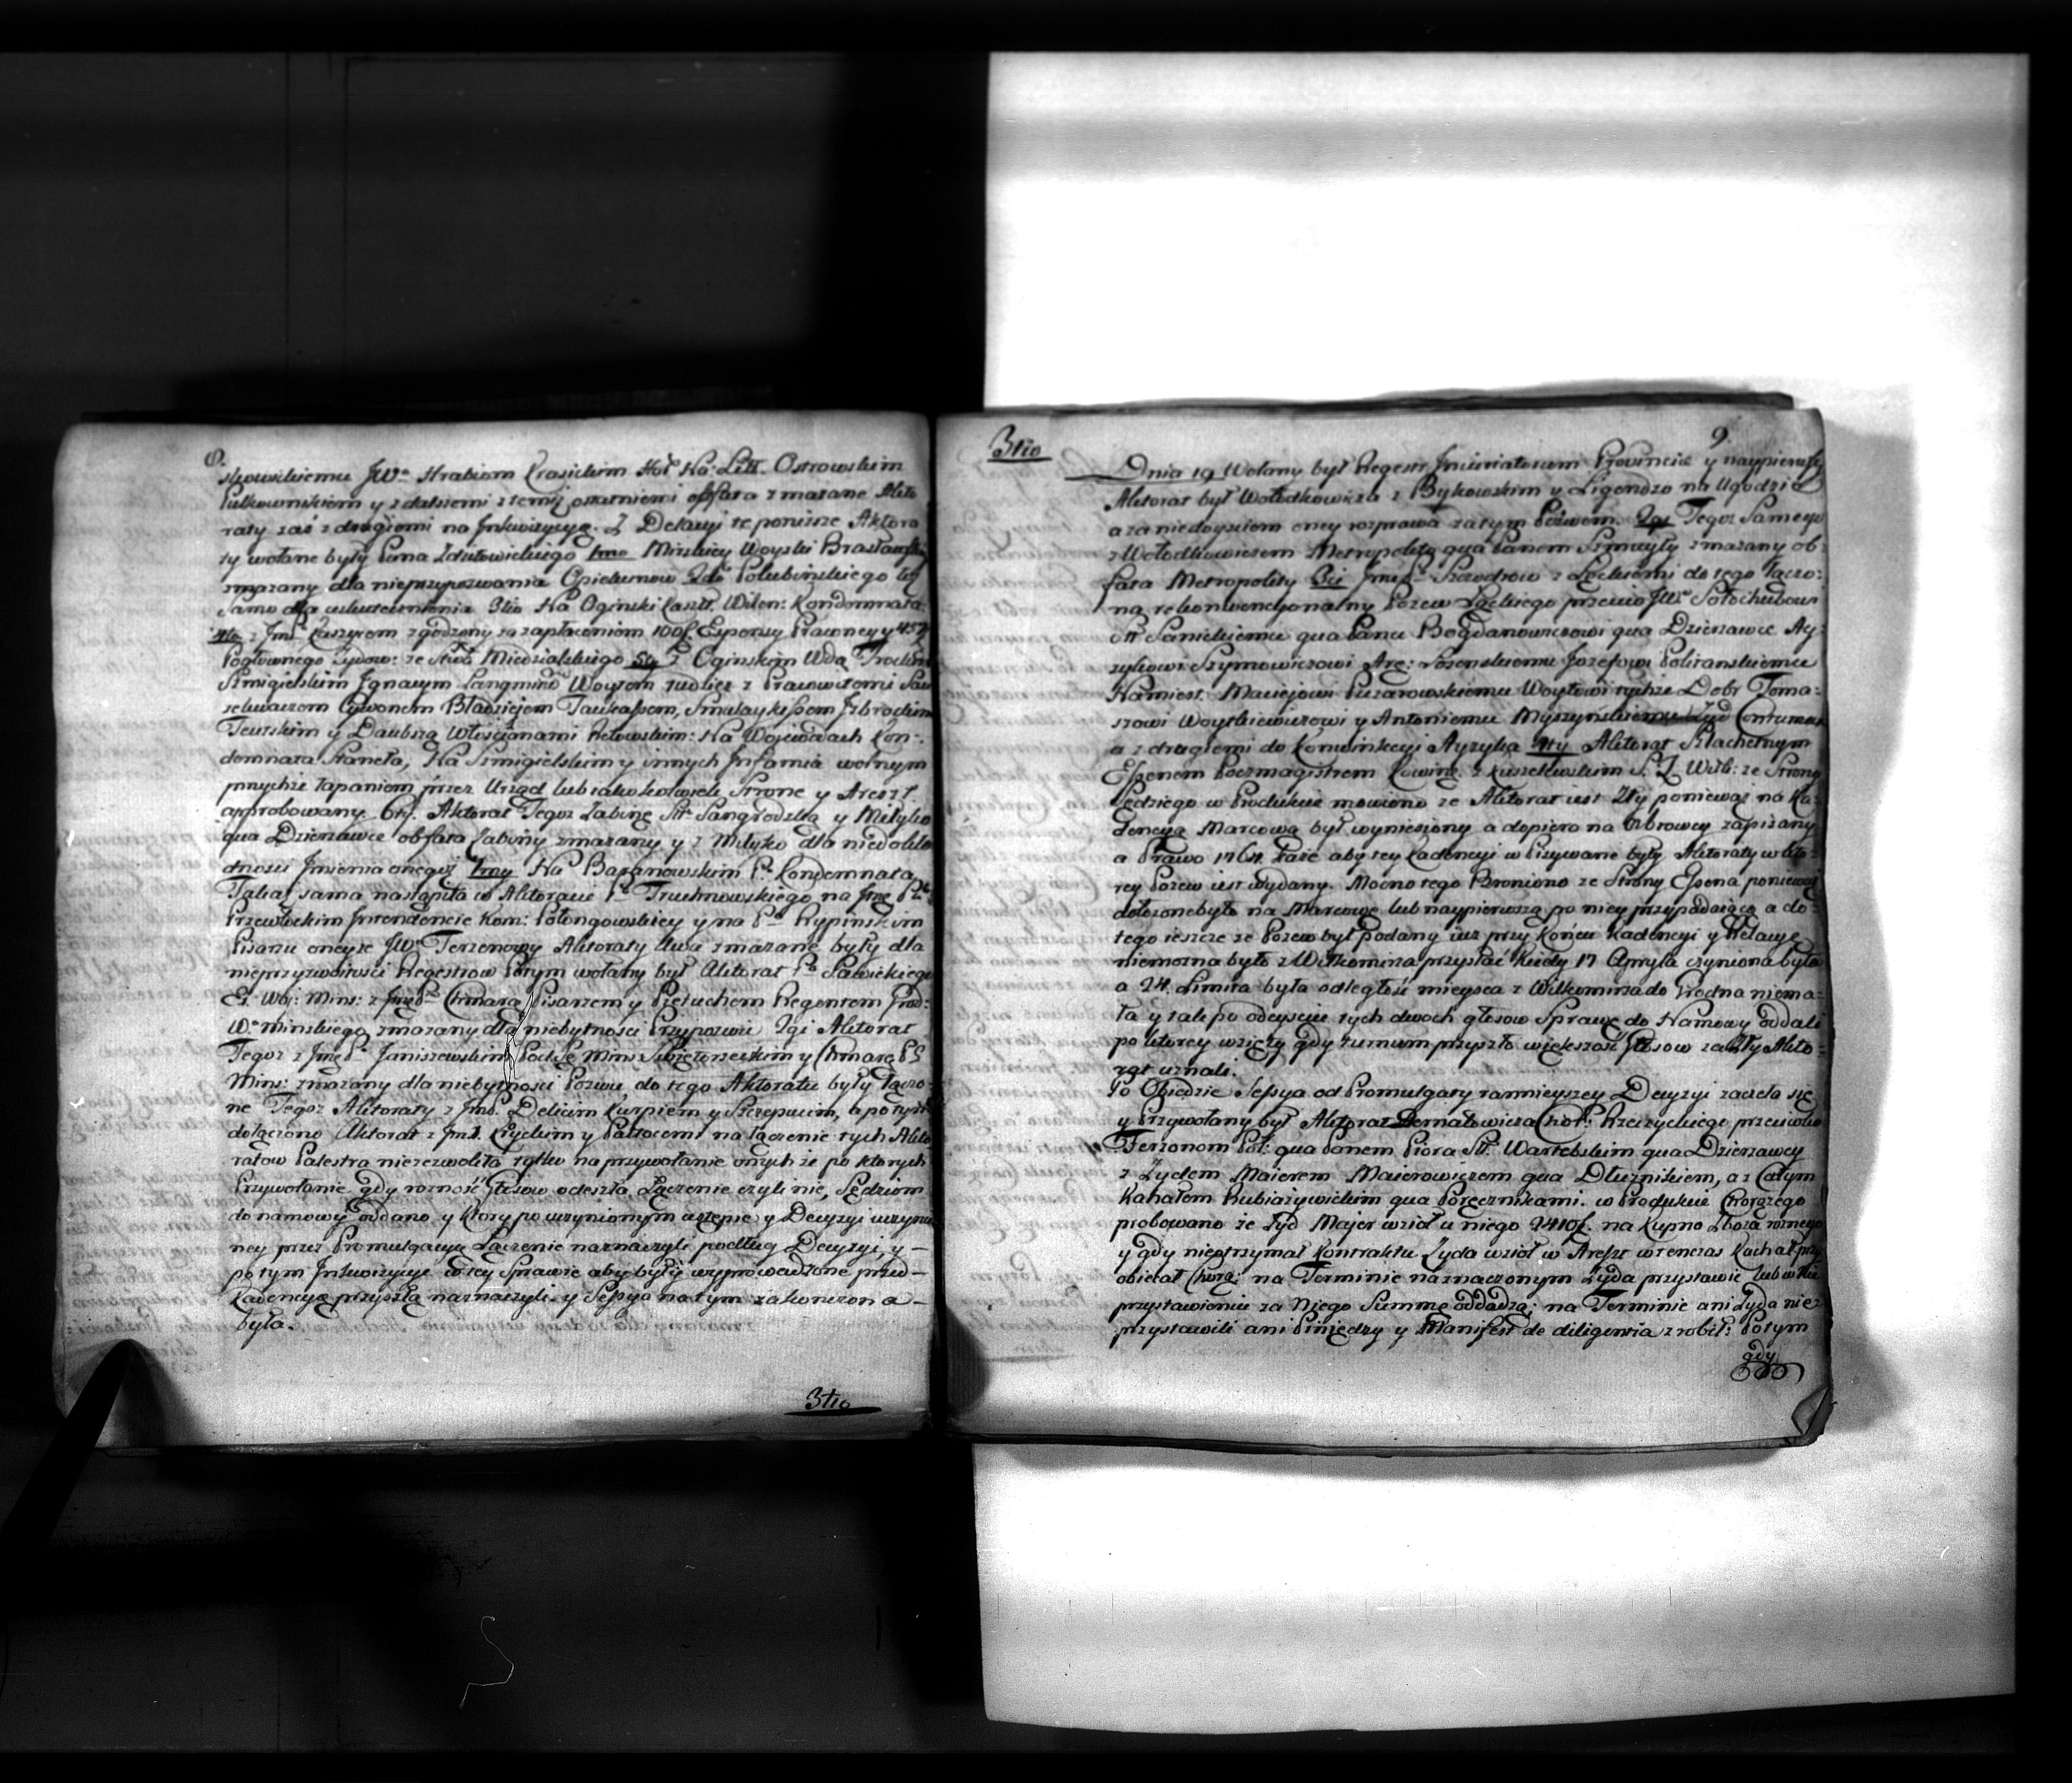 8.
skowskiemu JWo Hrabiom Krasickim Ho: Na: Litt. Ostrowskim
Pułkownikiem y z dalszemi z temiż ostatniemi offata zmazane Akto
raty zaś z drugiemi na Inkwizycyą. Z Delacyi te ponisze Aktora
ty wołane były Pana Zdutowickiego 1mo Minskiey Woyski Brasławski
zmazany dla nieprzypozwania Opiekunow 2do Połubinskiego też
samo dla uskutecznienia 3tio Na Oginski Kaszt. Wilen: Kondemnata
4to z Jmć Kaszycem zgodzony za zapłaceniem 100f. Expensy Prawney y 457
Pogłownego Żydow: ze Stwa Miedzialskiego 5ty z Oginskim Wdą Trockim
Szmigielskim Ignacym Langmino Woytem
Ciwonem Błażejem
Teurskim y Daubszą Włościanami Retowskim: Na Wojewodach Kon-
demnata Staneła, Na Szmigielskim y innych Infamia wolnym
onychże łapaniem przez Urząd lub jakokolwiek Strone y Areszt
approbowany 6ty. Aktorat Tegoz Łabinę Stt Sangrodzką y Mikyko
qua Dzierżawce offata Łabiny zmazany y z Mikyko dla niedokła
dnosci Imienia onegoż 7my Na Baranowskim P. Kondemnata
Takaż sama nastąpiła w Aktoracie P. Truchnowskiego na Jmć Pa
Przewłockim Intendencie Kom: Połongowskiey y na P. Rypinskim
Pisarzu oneyże JWo Terzenowy Aktoraty dwa zmazane były dla
nieprzyzwoitości Regestrow Potym wołany był Aktorat P. Sawickiego
Ex. Woj: Mins: z Jmć Pa Chmarą Pisarzem y Pietuchem Regentem Grod:
Wo Minskiego zmazany dla niebytności Przypozwu 2gi Aktorat
Tegoz z Jmć P. Janiszewskim Podsę Mins Swiętorzeckim y Chmarą PG
Mins: zmazany dla niebytności Pozwu do tego Aktoratu były łączo
ne Tegoz Aktoraty z JmP. Delicim Kurpiem y Szczepucim, a potym
dołączono Aktorat z Jmć. Kryckim y Patrocem: na łączenie tych Akto
ratow Palestra niezezwoliła tylko na przywołanie onych że po ktorych
Przywołanie gdy rozność głosow odeszła Łączenie czyli nie, Sędziom
do namowy oddano y ktorypo uczynionym ustępie y Decyzyi uczynio
ney przez Promulgacyą Łączenie naznaczyli podług Decyzyi, y –
potym Inkwizycye w tey Sprawie aby były wyprowadzone przed –
Kadencyą przyszłą naznaczyli y Sessya na tym zakonczona –
była.
3tio
9.
3tio
Dnia 19 Wołany był Regestr Inicriatorum Prowincie y naypierwszy
Aktorat był Wołodkowicza z Bykowskim y Ligendzo na Ugodzie
a za niedoysciem oney rozprawa za tym Pozwem. 2gi Tegoz Samego
z Wołodkowiczem Metropolitą qua Panem Szmigły zmazany ob:
fata Metropolity 3ci JmćP Szczodrow z Łackiemi do tego łączo:
na rekonwencyonalny Pozew Łackiego przeciw JWo Sołochubow
Stt Sanickiemu qua Panu Bogdanowiczowi qua Dzierżawce Ay:
zykowi Szymowiczowi Are: Sosenskiemu Jozefowi Politanskiemu
Namiest: Maciejowi Puzarowskiemu Woytowi tychże Dobr Toma:
szowi Woytkiewiczowi y Antoniemu Myszyńskiemu Żyd Contumax
a z drugiemi do Konwinkcyi Ayzyka 4ty Aktorat Szlachetnym
Essenem Poczmagistrem Kowinę. z Kuszelewskim S. Z. Wilk: ze Strony
Sędziego w Produkcie mowiono ze Aktorat iest Zły poniewaz na Ka:
dencyą Marcową był wyniesiony a dopiero na Xbrowey zapisany
a Prawo 1764. każe aby tey Kadencyi wpisywane były Aktoraty w kto:
rey Pozew iest wydany. Mocno tego Broniono ze Strony Essena poniewaz
dołożone było na Marcowę lub naypierwszą po niey przypadaiącą a do:
tego ieszcze ze Pozew był podany iuz przy Końcu Kadencyi y Relacye
niemozna było z Wiłkomirza przysłać kiedy 17 Apryla czyniona była
a 24. Limita była odległość mieysca z Wiłkomirza do Grodna niema:
ła y tak po odeysciu tych dwoch głosow Sprawę do Namowy oddali
po ktorey wzięty gdy turnum przyszło większość głosow za Zły Akto:
rat uznali.
Po Obiedzie Sessya od Promulgaty rannieyszey Decyzyi zaczeła się
y Przywołany był Aktorat Bernatowicza Chor: Rzeczyckiego przeciwko
Ferzonom Poł: qua Panem Piora Stt. Wartebskim qua Dzierżawcy
z Żydem Maierem Maierowiczem qua Dłużnikiem, a z Całym
Kahałem Rubiażywickim qua Poręcznikami. w Produkcie Chorązego
probowano że Żyd Majer wziął u niego 2410f. na Kupno Zboza roznego
y gdy nieotrzymał Kontraktu Żyda wziął w Areszt wtenczas Kachał przy
obiecał Chorą: na Terminie naznaczonym Żyda przystawić lub w nie
przystawieniu za Niego Summę oddadzą: na Terminie ani Żyda nie:
przystawili ani Piniędzy y Manifest de diligentia zrobił: Potym
gdy